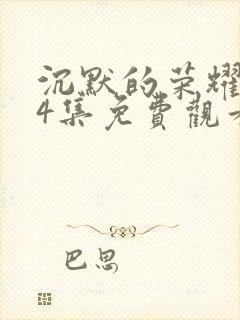 沉默的荣耀
4集免費觀看
巴思